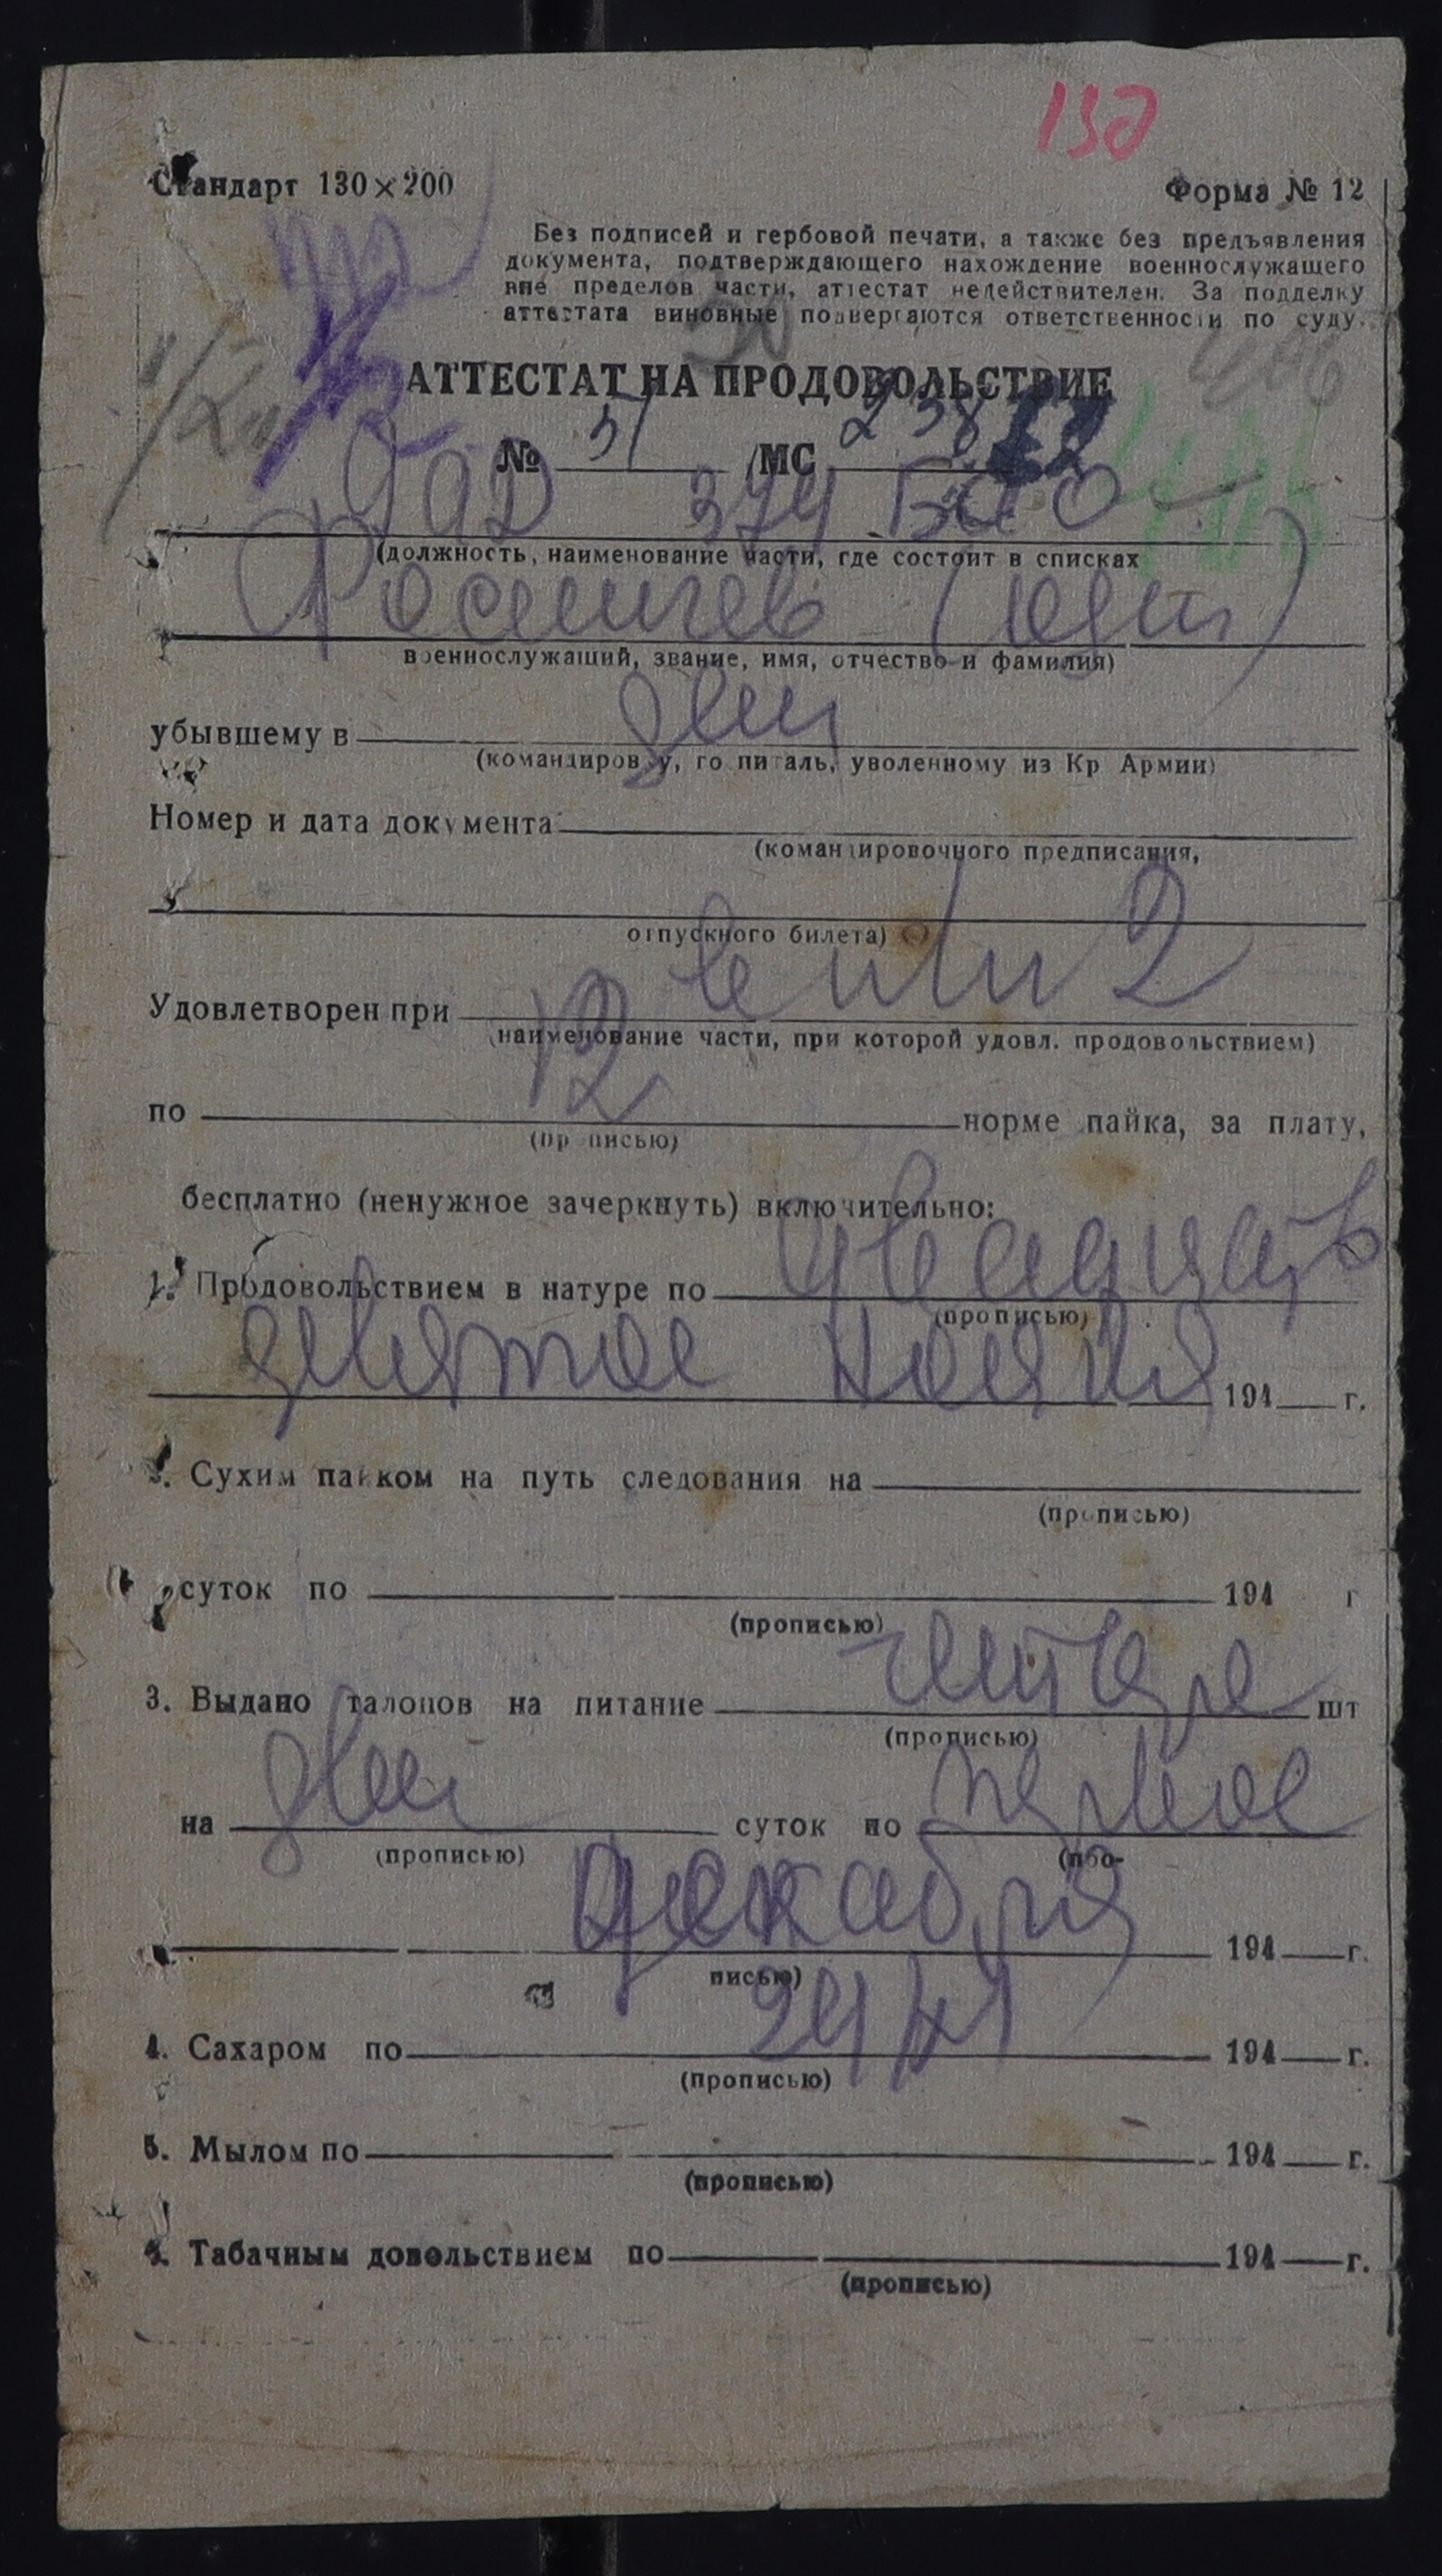 130
Стандарт 130×200
Форма № 12
Без подписей и гербовой печати, а также без предъявления
документа, подтверждающего нахождение военнослужащего
вне пределов части, аттестат недействителен. За подделку
аттестата виновные подвергаются ответственности по суду.
АТТЕСТАТ НА ПРОДОВОЛЬСТВИЕ
№ 51 МС 238
374
(должность, наименование части, где состоит в списках
военнослужащий, звание, имя, отчество и фамилия)
убывшему в
(командировку, госпиталь, уволенному из Кр Армии)
Номер и дата документа
(командировочного предписания,
отпускного билета)
Удовлетворен при
(наименование части, при которой удовл. продовольствием)
по 12 норме пайка, за плату,
(прописью)
бесплатно (ненужное зачеркнуть) включительно:
1. Продовольствием в натуре по двадцать
(прописью)
девятое ноября 194 г.
2. Сухим пайком на путь следования на
(прописью)
суток по 194 г
(прописью)
3. Выдано талонов на питание четыре шт
(прописью)
на две суток по первое
(прописью) (про-
декабря 194 г.
писью)
4. Сахаром по 194 г.
(прописью)
5. Мылом по 194 г.
(прописью)
6. Табачным довольствием по 194 г.
(прописью)